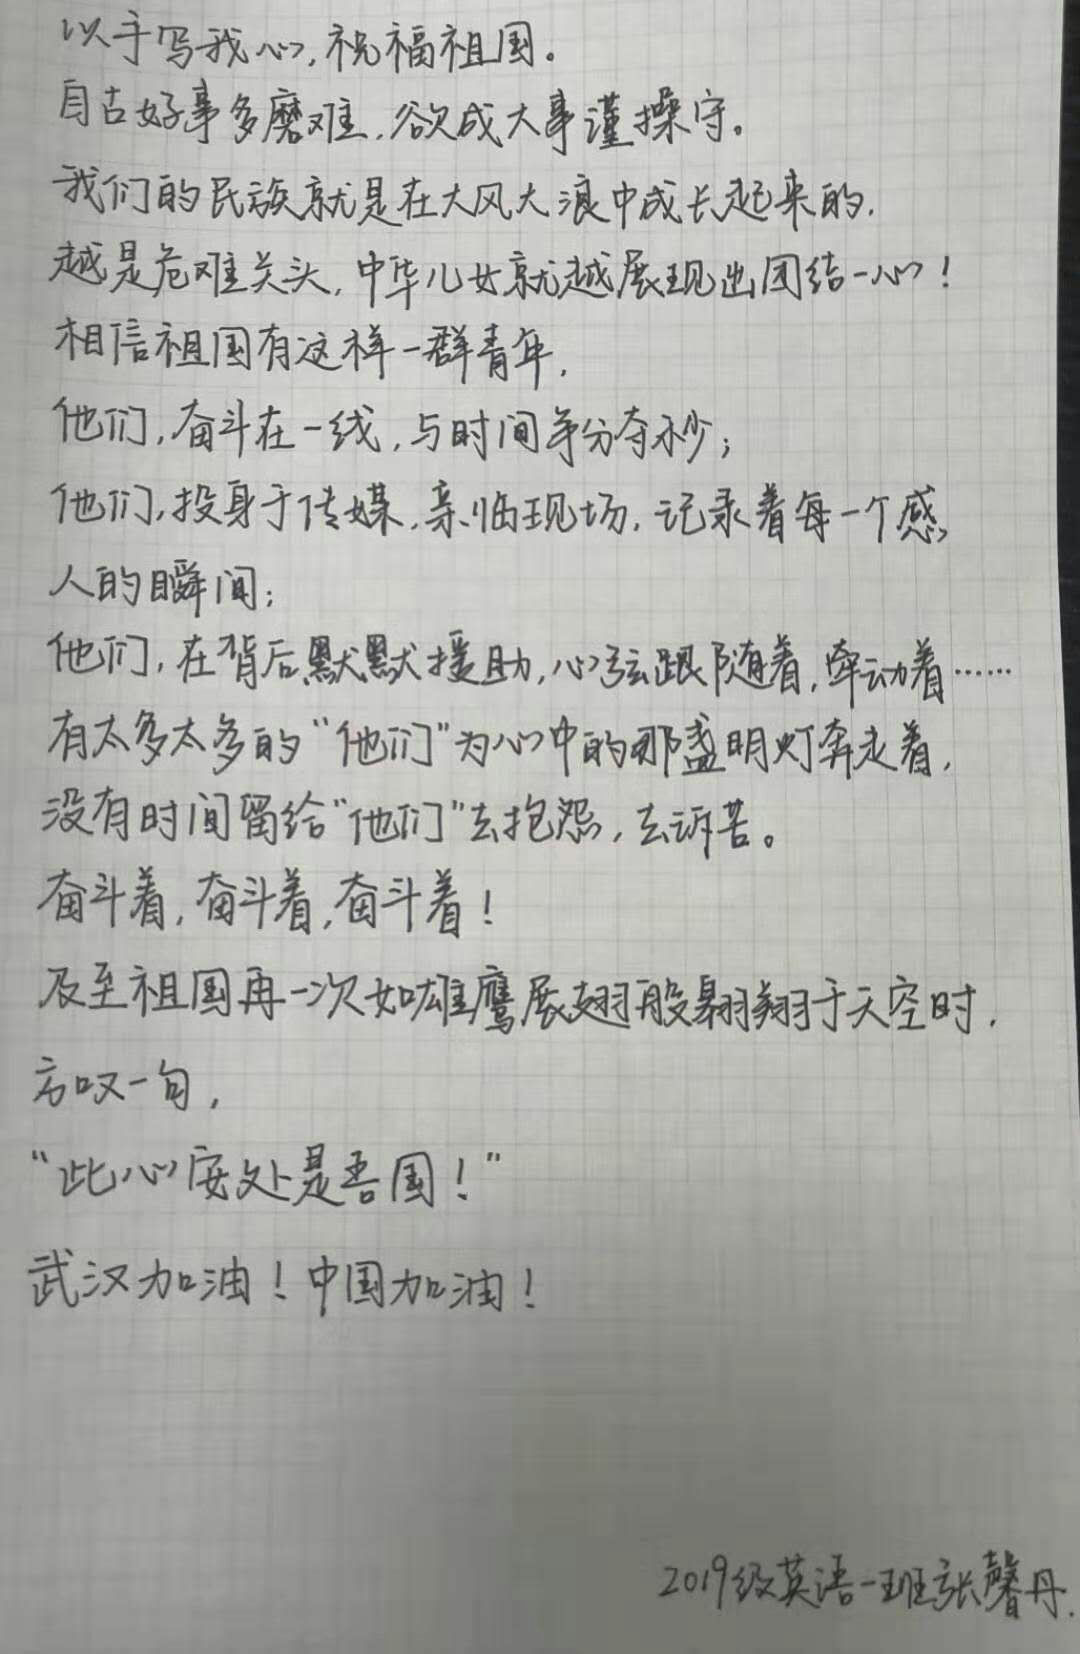 以手写我心,祝福祖国。
自古好事多磨难,欲成大事谨操守。
我们的民族就是在大风大浪中成长起来的,
越是危难关头,中华儿女就越展现出团结一心!
相信祖国有这样一群青年,
他们,奋斗在一线,与时间争分夺秒;
他们,投身于传媒,亲临现场,记录着每一个感
人的瞬间;
他们,在背后默默援助,心弦跟随着,牵动着……
有太多太多的“他们”为心中的那盏明灯奔走着,
没有时间留给“他们”去抱怨,去诉苦。
奋斗着,奋斗着,奋斗着!
及至祖国再一次如雄鹰展翅般翱翔于天空时,
方叹一句,
“此心安处是吾国!”
武汉加油!中国加油!
2019级英语一班张馨丹.